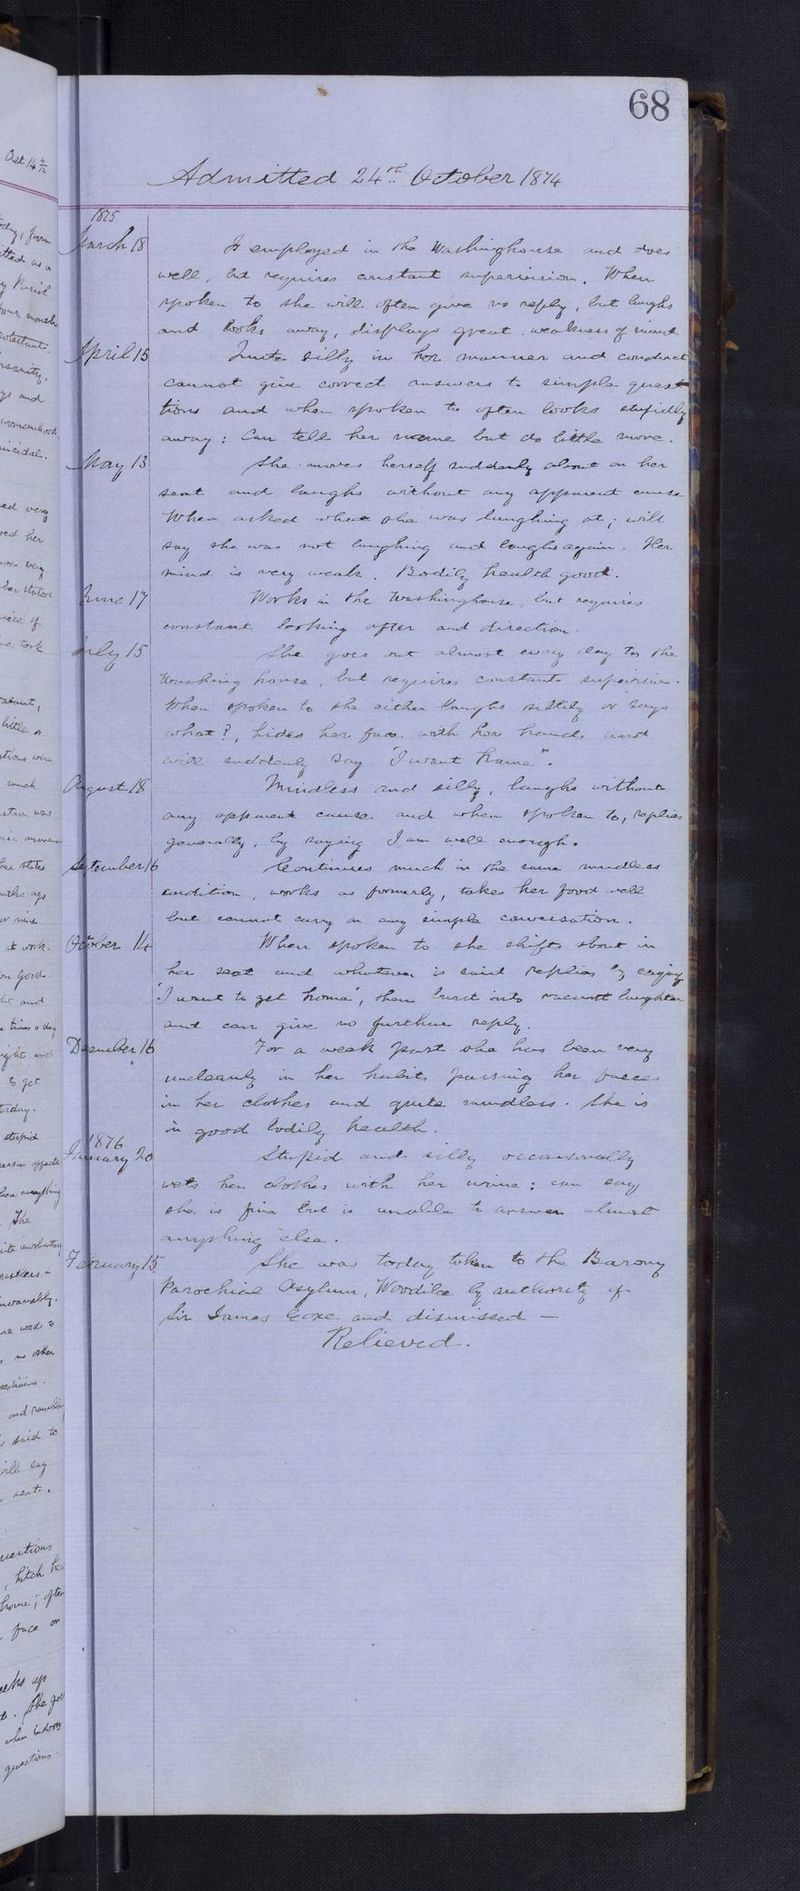 68
Admitted 24th October 1874
1875
March 18 Is employed in the Washinghouse and does
well, but requires constant supervision. When
spoken to she will often give no reply, but laughs
and looks away, displays great weakness of mind
April 15 Quite silly in her manner and conduct
cannot give correct answers to simple ques-
tions and when spoken to often looks stupidly
away: Can tell her name but do little more.
May 13 She moves herself suddenly about on her
seat and laughs without any apparent cause
When asked what she was laughing at; will
say she was not laughing and laughs again. Her
mind is very weak. Bodily health good.
June 17 Works in the Washinghouse, but requires
constant looking after and direction.
July 15 She goes out almost every day to the
Washing house, but requires constant supervision.
When spoken to she either laughs sillily or says
what?, hides her face with her hands and
will suddenly say "I want hame".
August 18 Mindless and silly, laughs without
any apparent cause and when spoken to, replies
generally, by saying I am well enough.
September 16 Continues much in the same mindless
condition, works as formerly, takes her food well
but cannot carry on any simple conversation.
October 14 When spoken to she shifts about in
her seat and whatever is said replies by crying
'I want to get home', then burst into vacant laughter
and can give no further reply.
December 16 For a week past she has been very
uncleanly in her habits passing her faeces
in her clothes and quite mindless. She is
in good bodily health.
1876
January 20 Stupid and silly occasionally
wets her clothes with her urine: can say
she is fine but is unable to answer almost
anything else.
February 15 She was today taken to the Barony
Parochial Asylum, Woodilee by authority of
Sir James Coxe and dismissed —
Relieved.